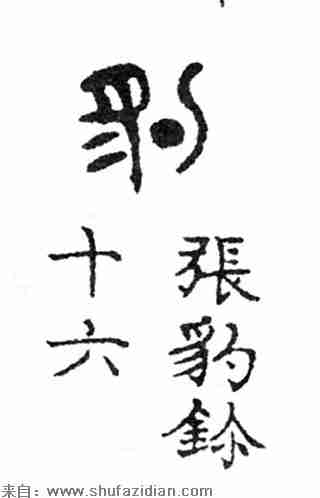 豹
張豹鉩
十六
来自：www.shufazidian.com